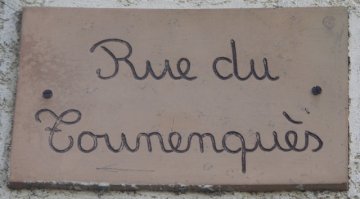 Rue du
Tounenquès